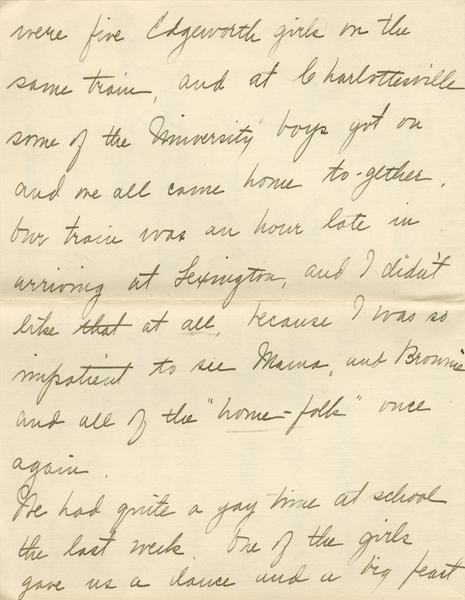 were five Edgeworth girls on the
same train, and at Charlottesville
some of the University boys got on
and we all came home to-gether.
Our train was an hour late in
arriving at Lexington, and I didn't
like that at all, because I was so
impatient to see Mama, and Brownie
and all of the "home-folk" once
again.
We had quite a gay time at school
the last week. One of the girls
gave us a dance and a big feast